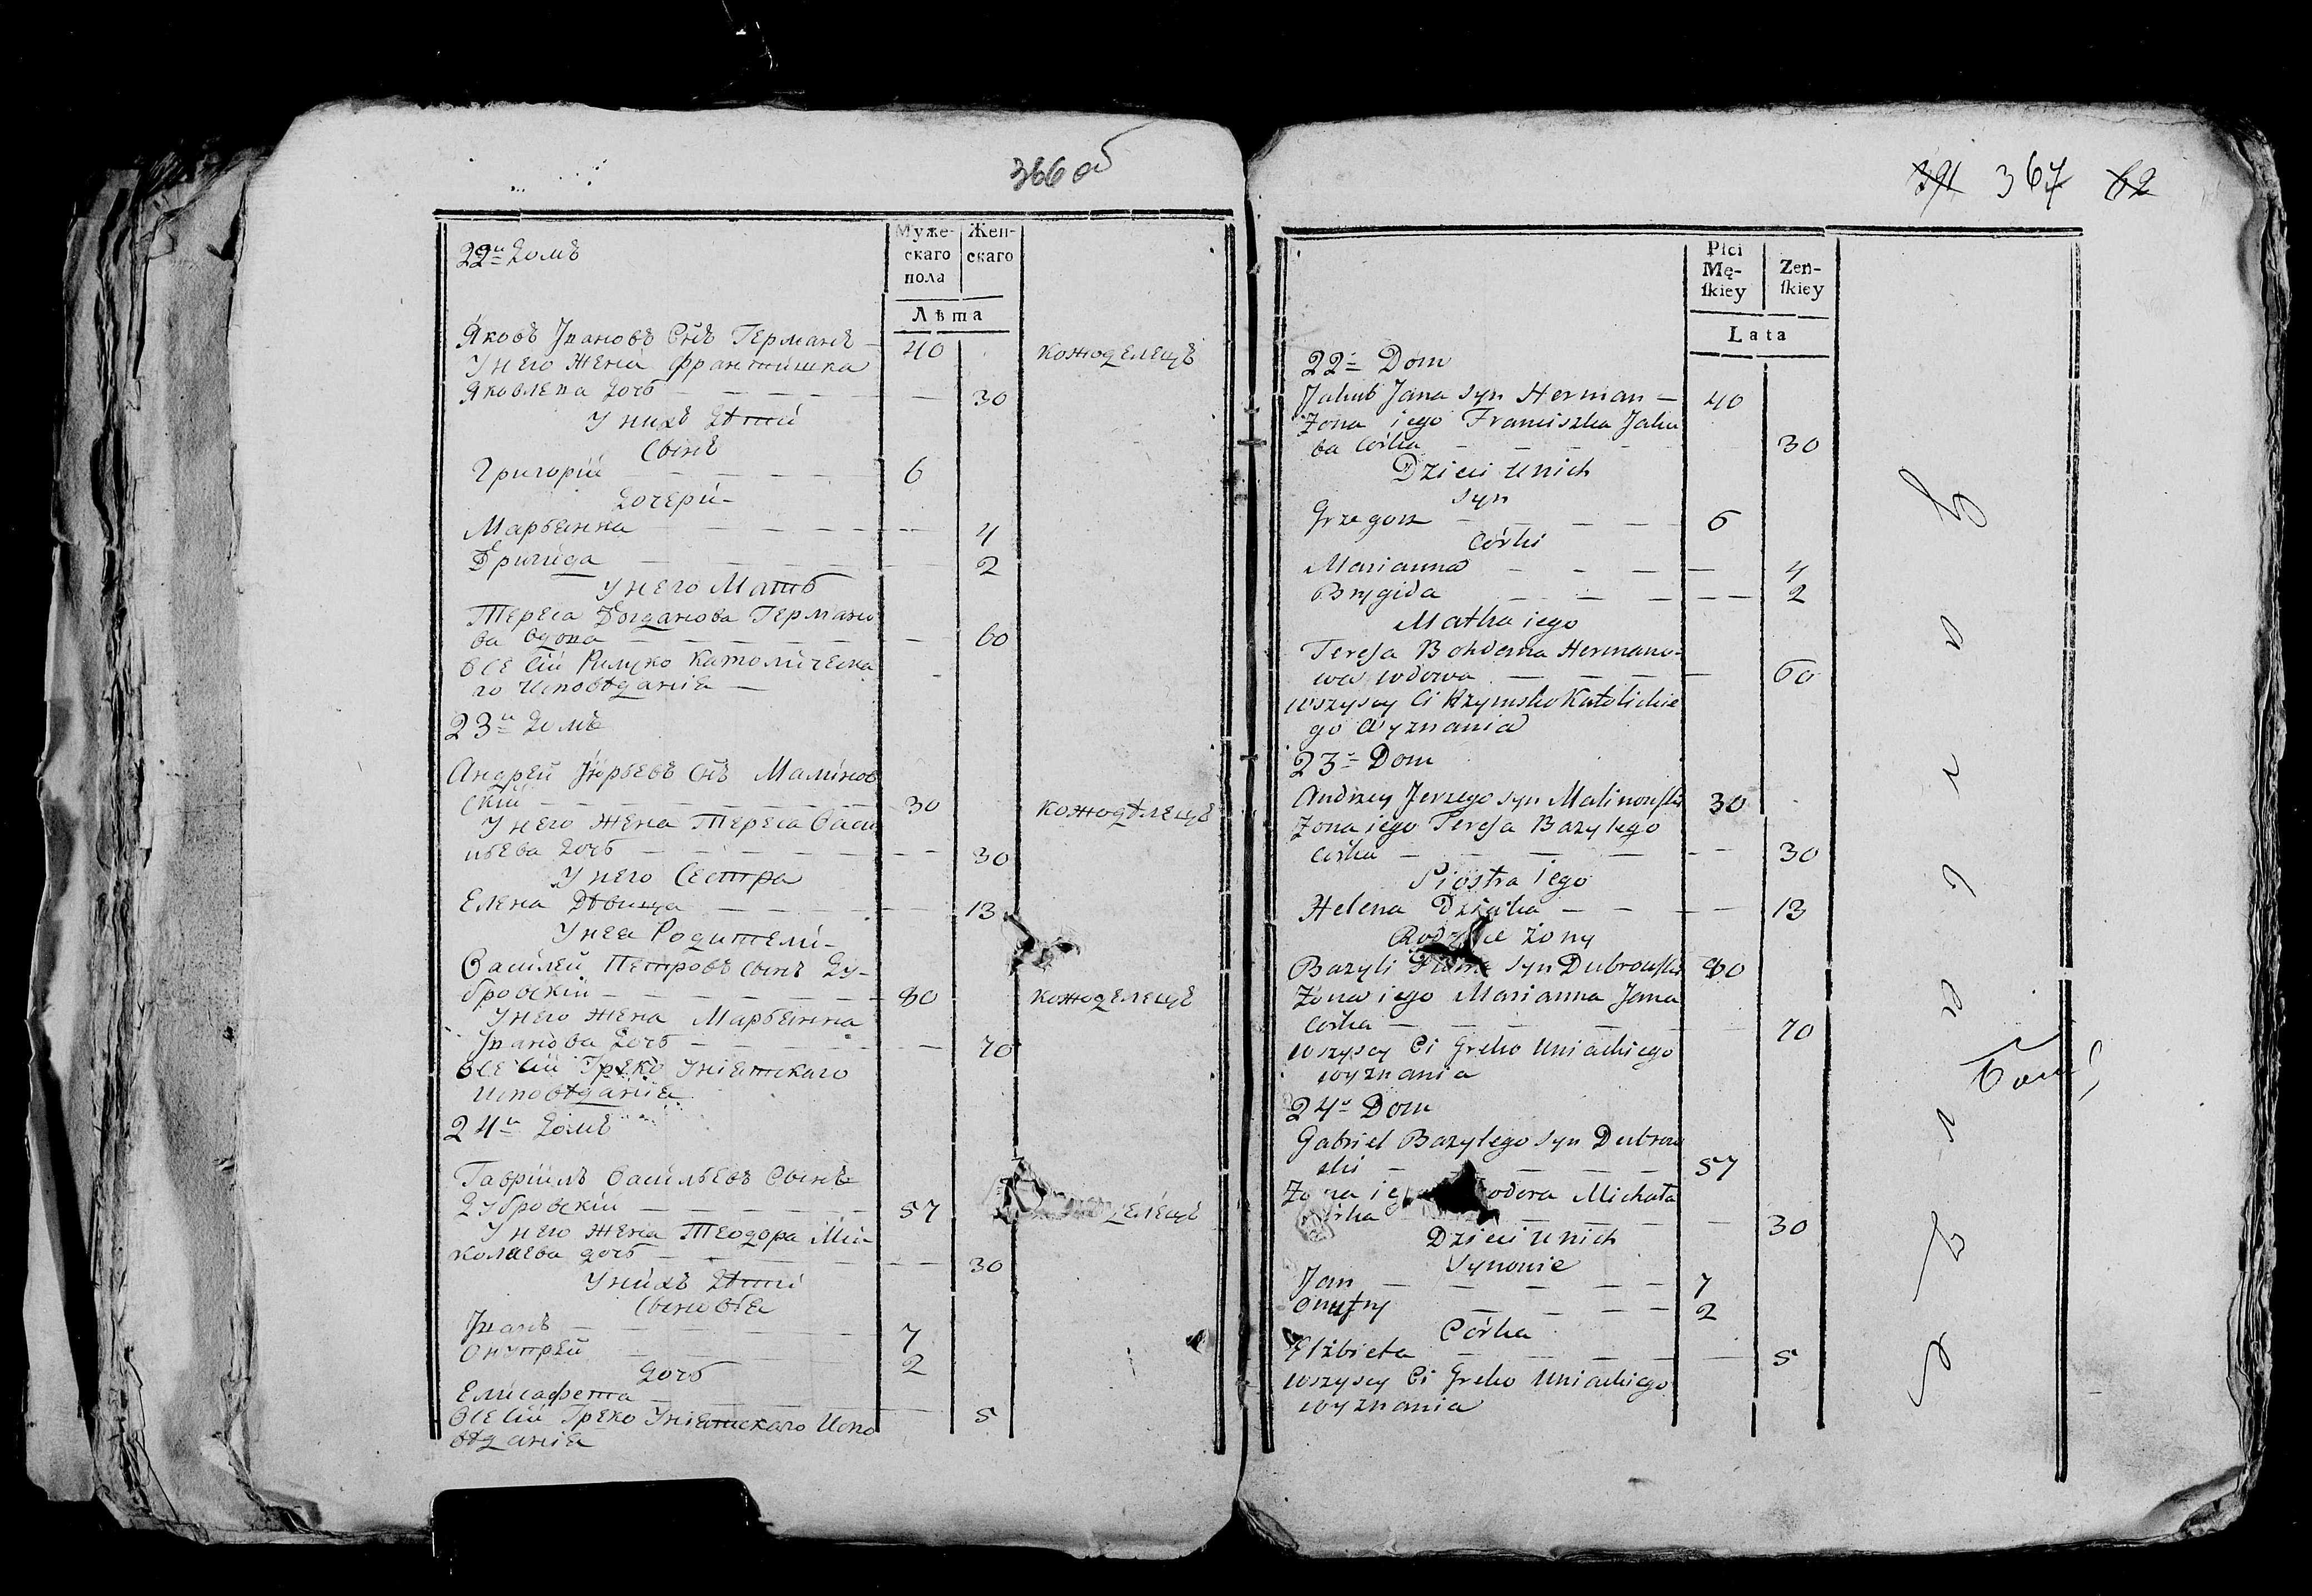 366 об
22й Домъ
Муже-
скаго
пола
Жен-
скаго
Лѣта
Яковъ Ивановъ Снъ Германъ — 40 кожоделецъ
У него жена Францишка
Яковлева дочь — 30
У нихъ Дѣти
Сынъ
Григорій — 6
Дочери
Марьянна — 4
Бригида — 2
У него Мать
Тереса Богданова Германо
ва вдова — 60
Все сіи Римско Католическа
го исповѣданія —
23й Домъ
Андрей Юрьевъ снъ Малинов
скій — 30 кожодѣлецъ
У него жена Тереса Васи
льева дочь — 30
У него Сестра
Елена Дѣвица — 13
У нея Родители
Василей Петровъ сынъ Ду-
бровскій — 80 кожоделецъ
У него жена Марьянна
Иванова дочь — 70
Все сіи Греко Уніятскаго
исповѣданія
24й Домъ
Гавріилъ Васильевъ Сынъ
Дубровскій — 57 делецъ
У него жена Теодора Ми-
колаева дочь — 30
У нихъ Дѣти
Сыновья
Иванъ — 7
Онупрей — 2
Дочь
Елисафета — 5
Все сіи Греко Уніятскаго Испо
вѣданія
391 367 62
Płci
Mę-
skiey
Zeń-
skiey
Lata
22= Dom
Jakub Jana syn Herman — 40
Żona iego Franciszka Jaku
ba córka — 30
Dzieci u nich
syn
Grzegorz — 6
Córki
Marianna — 4
Brygida — 2
Matka iego
Teresa Bohdana Hermano-
wa wdowa — 60
wszyscy Ci Rzymsko Katolickie
go wyznania
23= Dom
Andrzey Jerzego syn Malinowski 30
Żona iego Teresa Bazylego
córka — 30
Siostra iego
Helena Dziewka — 13
Rodzice żony
Bazyli syn Dubrowski 80
Żona iego Marianna Jana
córka — 70
wszyscy Ci Greko Uniackiego
wyznania
24= Dom
Gabriel Bazylego syn Dubrow
ski — 57
Żona odora Michała
córka — 30
Dzieci u nich
Synowie
Jan — 7
Onufry — 2
Córka
Elżbieta — 5
wszyscy Ci Greko Uniackiego
wyznania